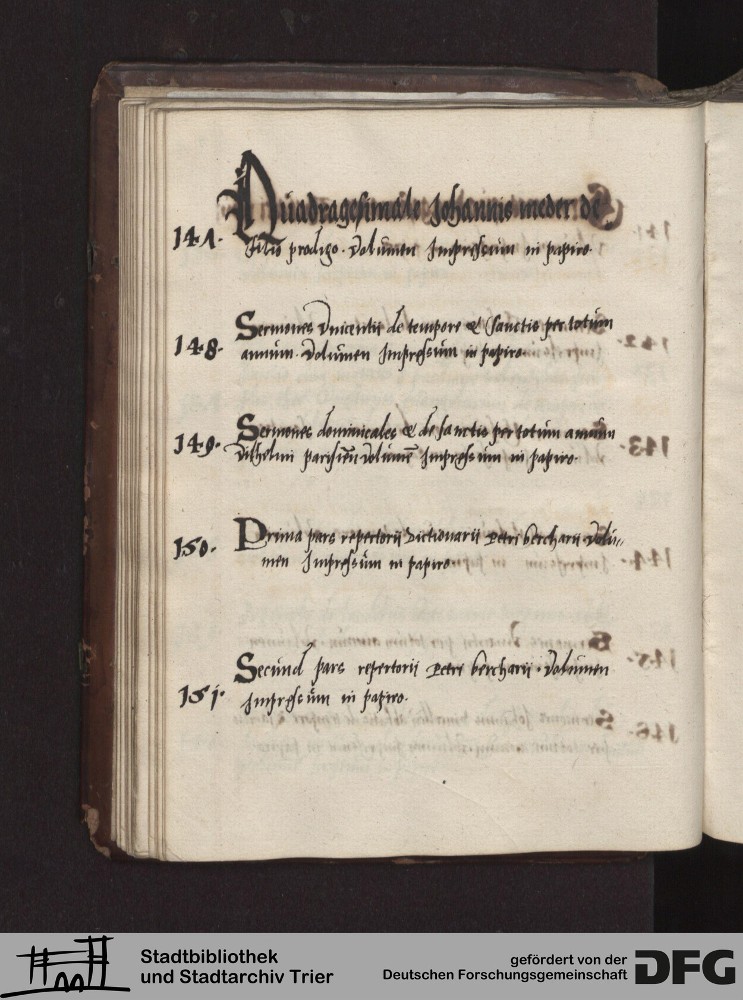 Quadragesimale Johannis meder de
147. filio prodigo. Volumen Impressum in papiro.
148. Sermones Vincentii de tempore et sanctis per totum
annum. Volumen Impressum in papiro.
149. Sermones dominicales et de sanctis per totum annum
Vilhelmi parisieñ volumē Impressum in papiro.
150. Prima pars repertorii dictionarii petri bercharii Volu-
men Impressum in papiro
151. Secund pars repertorii petri bercharii. Volumen
Impressum in papiro.
Stadtbibliothek
und Stadtarchiv Trier
gefördert von der
Deutschen Forschungsgemeinschaft
DFG